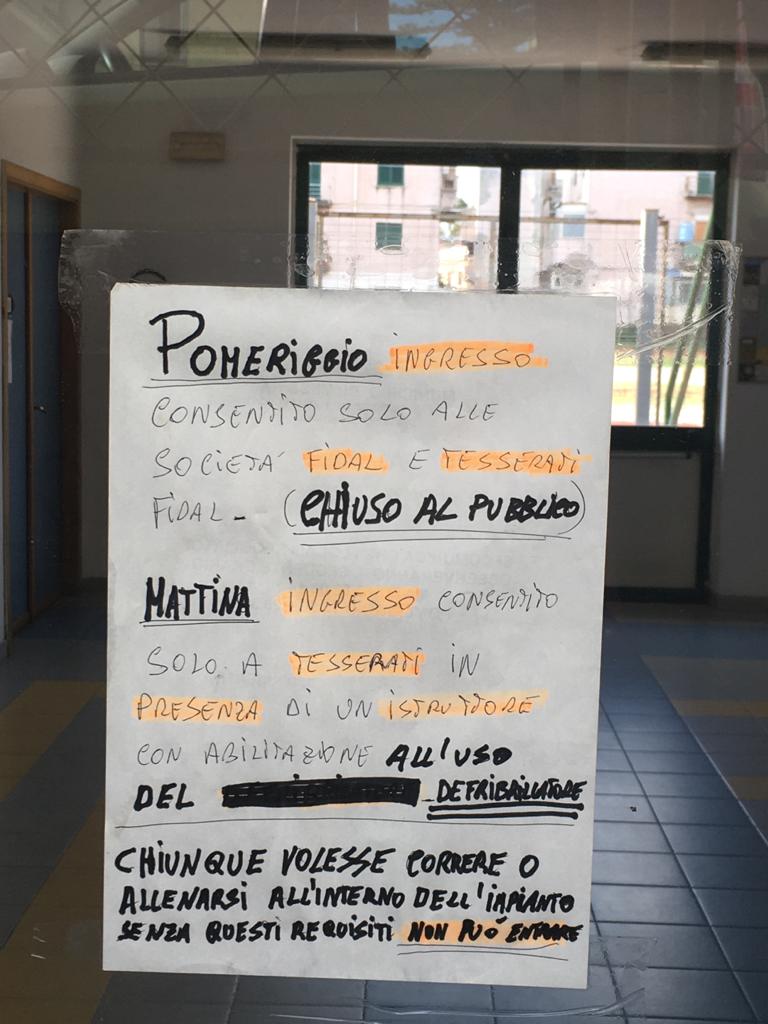 POMERIGGIO INGRESSO
CONSENTITO SOLO ALLE
SOCIETÀ FIDAL E TESSERATI
FIDAL - (CHIUSO AL PUBBLICO)
MATTINA INGRESSO CONSENTITO
SOLO A TESSERATI IN
PRESENZA DI UN ISTRUTTORE
CON ABILITAZIONE ALL'USO
DEL DEFRIBRILLATORE
CHIUNQUE VOLESSE CORRERE O
ALLENARSI ALL'INTERNO DELL'IMPIANTO
SENZA QUESTI REQUISITI NON PUÓ ENTRARE